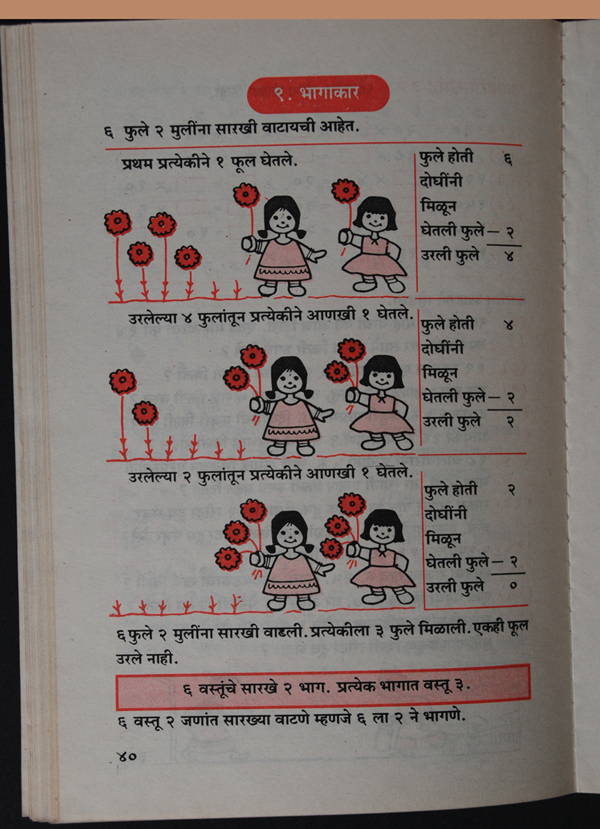 ९. भागाकार
६ फुले २ मुलींना सारखी वाटायची आहेत.
प्रथम प्रत्येकीने १ फूल घेतले.
फुले होती ६
दोघींनी
मिळून
घेतली फुले – २
उरली फुले ४
उरलेल्या ४ फुलांतून प्रत्येकीने आणखी १ घेतले.
फुले होती ४
दोघींनी
मिळून
घेतली फुले – २
उरली फुले २
उरलेल्या २ फुलांतून प्रत्येकीने आणखी १ घेतले.
फुले होती २
दोघींनी
मिळून
घेतली फुले – २
उरली फुले ०
६ फुले २ मुलींना सारखी वाटली. प्रत्येकीला ३ फुले मिळाली. एकही फूल
उरले नाही.
६ वस्तूंचे सारखे २ भाग. प्रत्येक भागात वस्तू ३.
६ वस्तू २ जणांत सारख्या वाटणे म्हणजे ६ ला २ ने भागणे.
४०